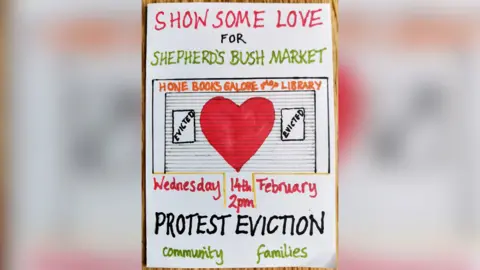 SHOW SOME LOVE
FOR
SHEPHERD'S BUSH MARKET
HONE BOOKS GALORE LIBRARY
EVICTED
EVICTED
Wednesday 14th February
2pm
PROTEST EVICTION
community families